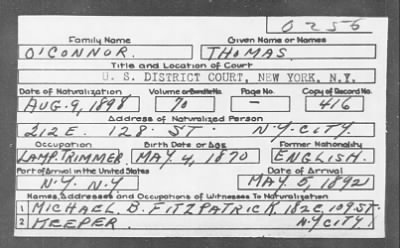 O256
Family Name Given Name or Names
O'CONNOR. THOMAS.
Title and Location of Court
U. S. DISTRICT COURT, NEW YORK, N.Y.
Date of Naturalization Volume or Bundle No. Page No. Copy of Record No.
AUG. 9, 1898 70 — 416
Address of Naturalized Person
212 E. 128. ST. N.Y. CITY.
Occupation Birth Date or Age Former Nationality
LAMP. TRIMMER. MAY. 4, 1870 ENGLISH.
Port of Arrival in the United States Date of Arrival
N.Y. N.Y MAY. 5, 1892
Names, Addresses and Occupations of Witnesses To Naturalization
1 MICHAEL B. FITZPATRICK, 182 E. 109. ST.
2 KEEPER. N.Y. CITY.